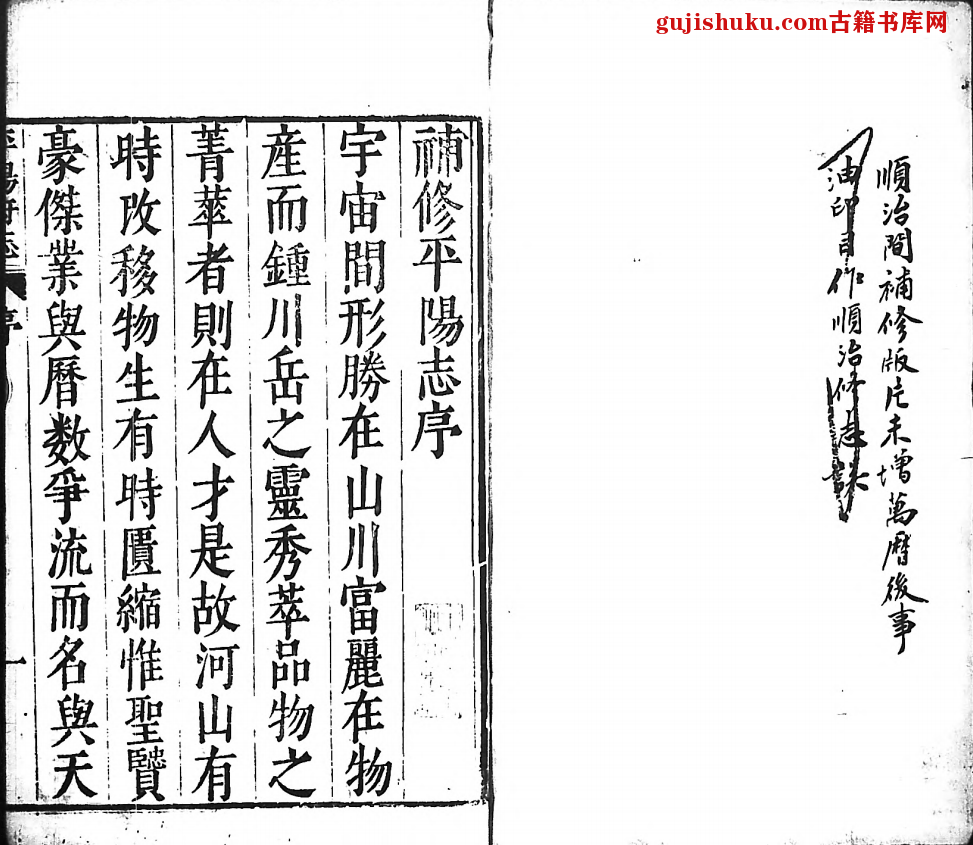 gujishuku.com古籍书库网
順治間補修版片未增萬曆後事
油印目作順治修志誤
補修平陽志序
宇宙間形勝在山川富麗在物
産而鍾川岳之靈秀萃品物之
菁萃者則在人才是故河山有
時改移物生有時匱縮惟聖賢
豪傑業與曆数爭流而名與天
平陽府志 序 一